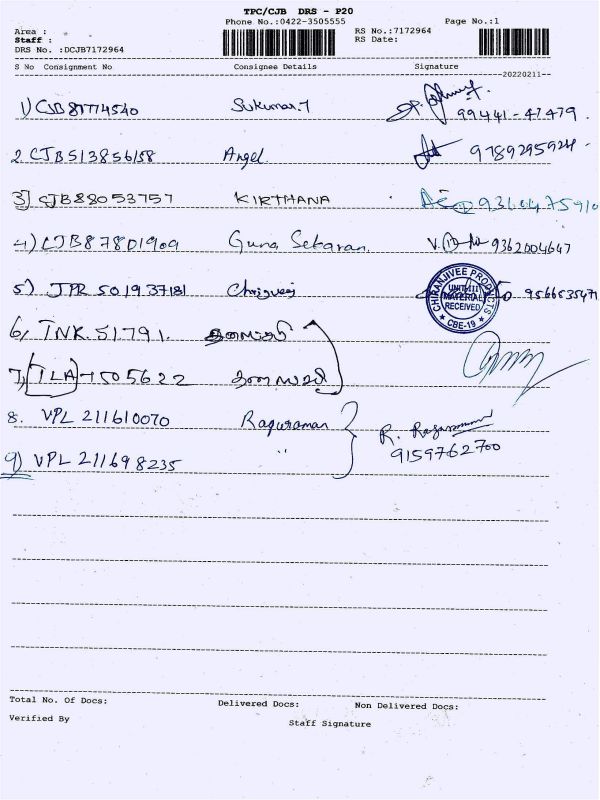 TPC/CJB DRS - P20
Phone No.:0422-3505555 Page No.:1
Area :
Staff : RS No.:7172964
DRS No. :DCJB7172964 RS Date:
S No Consignment No Consignee Details Signature
--20220211--
1) CJB 81774540 Sukumar.T 99441-47479
2. CJB513856158 Angel 9789295924
3) CJB88053757 KIRTHANA
4) CJB87801909 Guna Sekaran 9362004647
5) JPR 501937181 9566535471
CHIRANJIVEE PRODUCTS
UNIT-III
MATERIAL
RECEIVED
CBE-19
6) TNK 51791.
7) TLA 1505622
8. VPL 211610070 Raguraman R.
9) VPL 211698235 " 9159762700
Total No. Of Docs: Delivered Docs: Non Delivered Docs:
Verified By Staff Signature